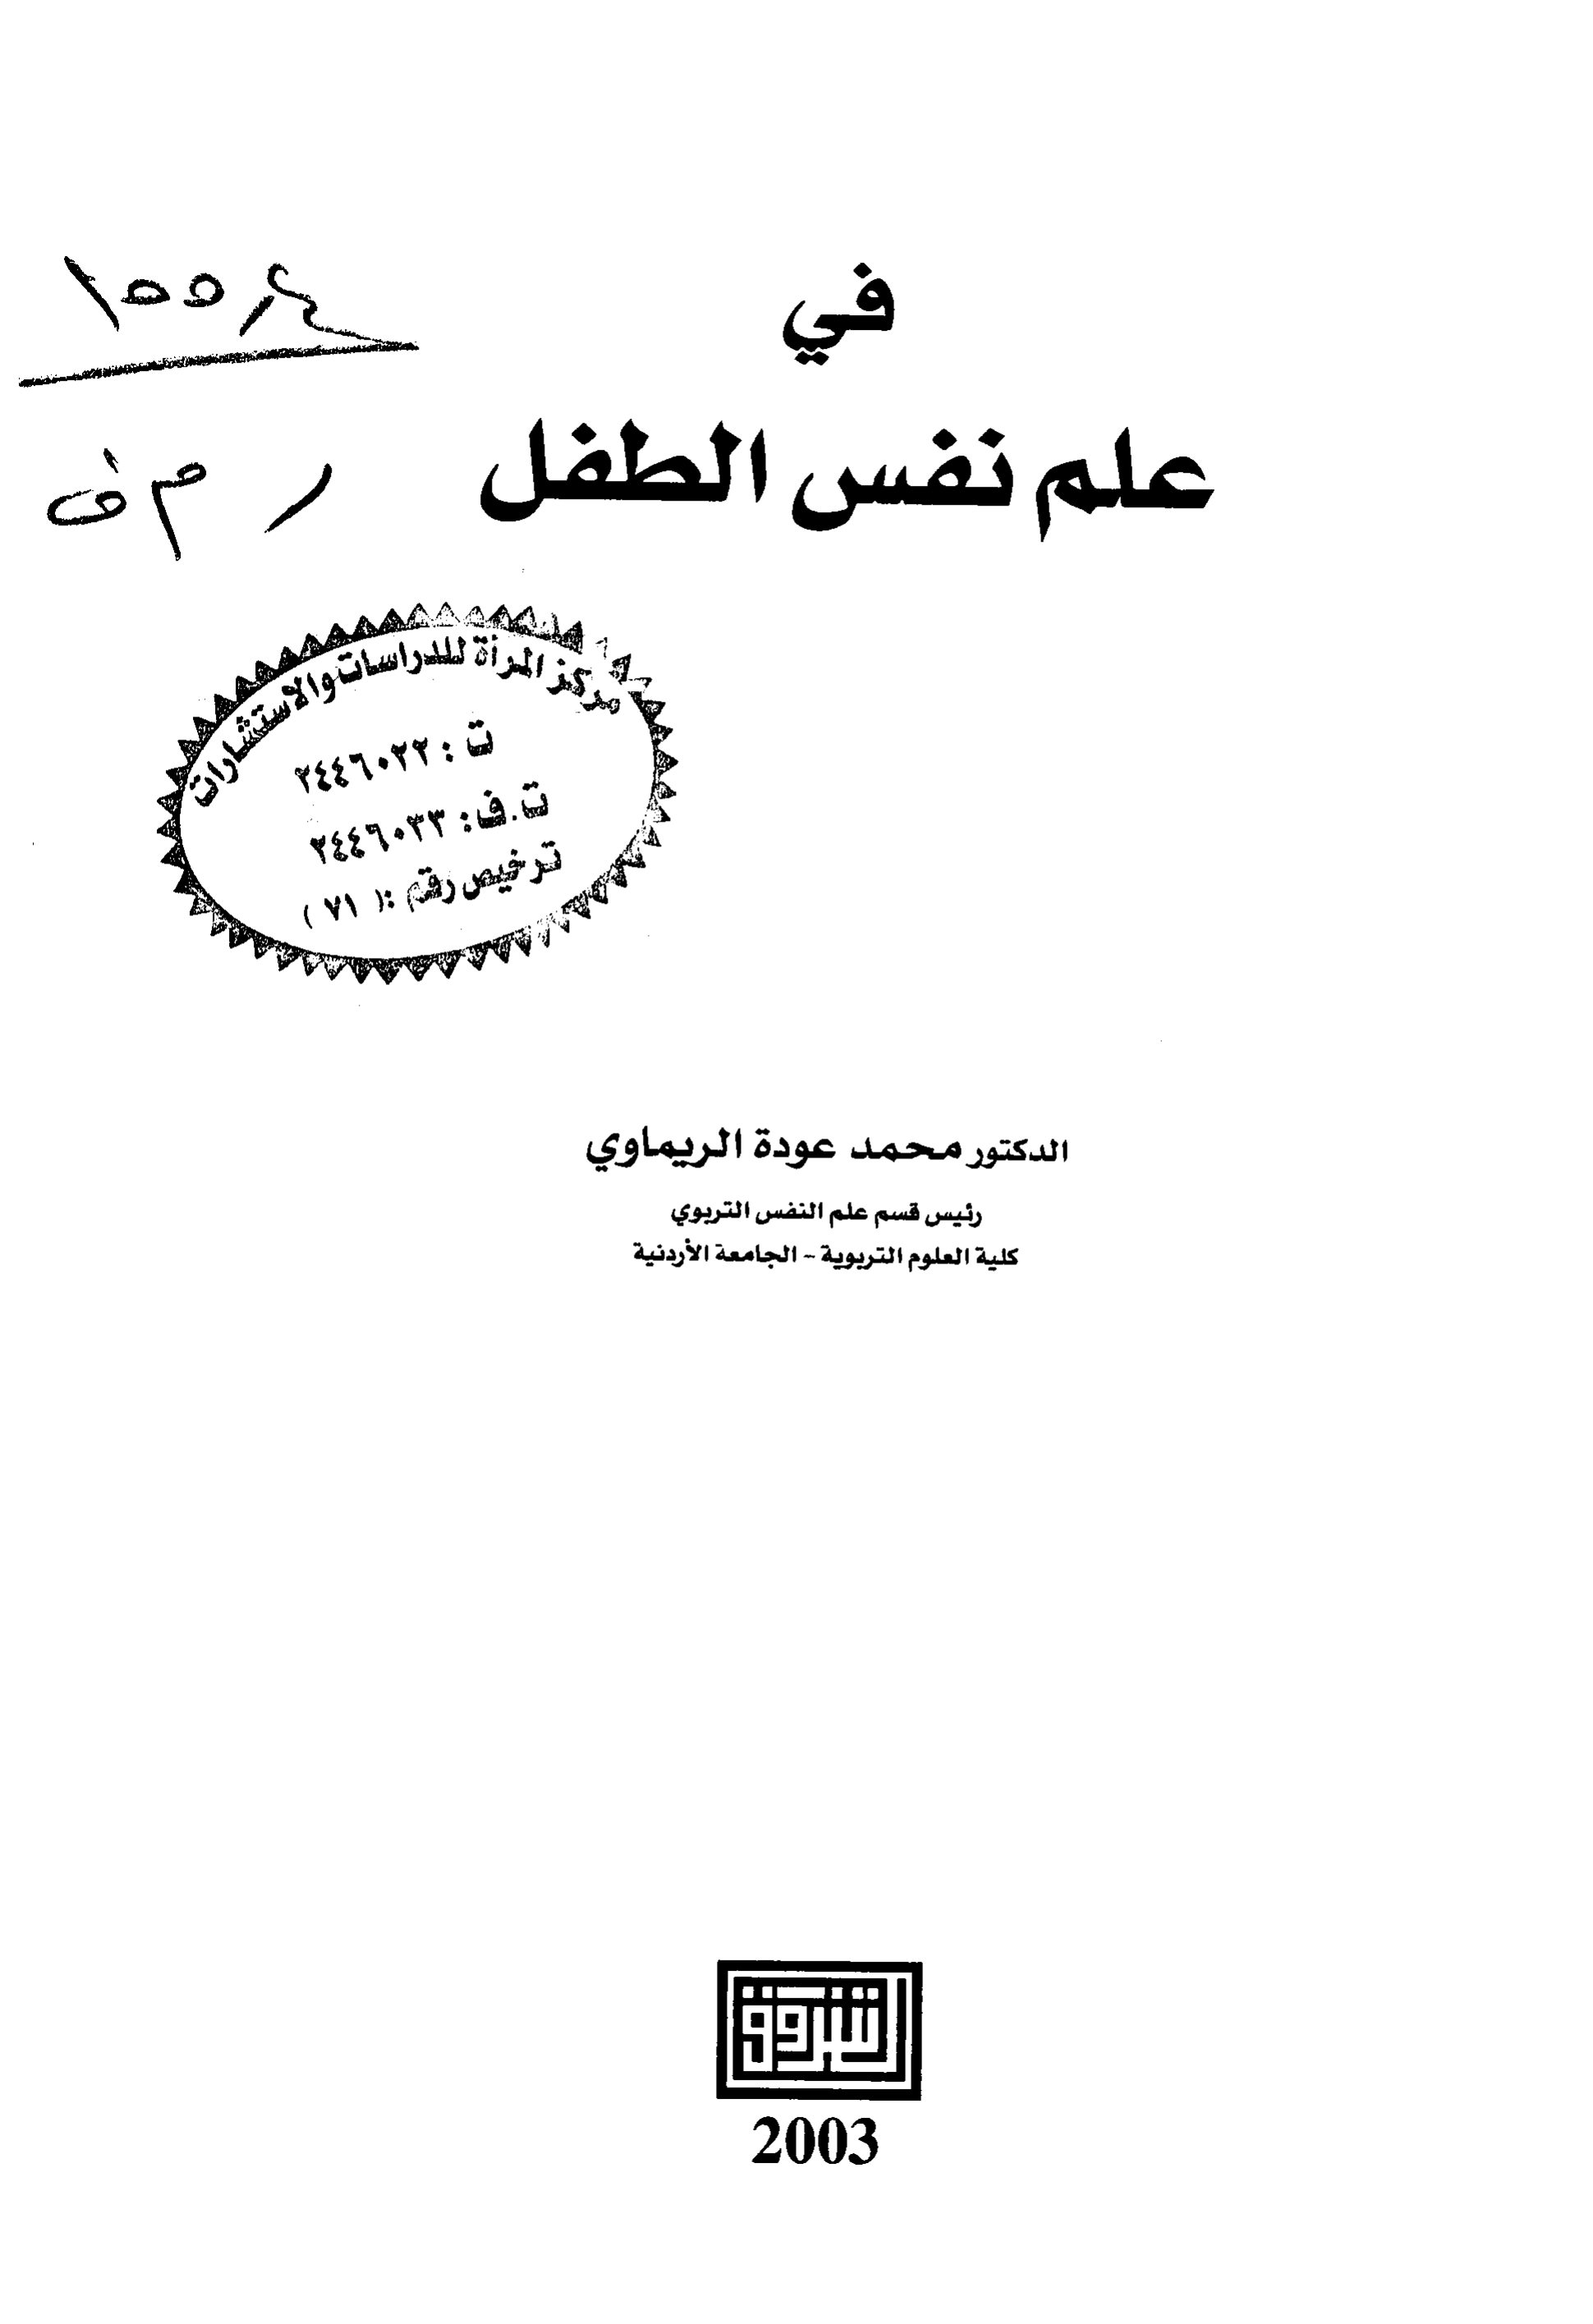 في
علم نفس الطفل
١٥٥ر٤
ر م ف
مركز المرأة للدراسات والاستشارات
ت : ٢٤٤٦٠٢٢
ت.ف: ٢٤٤٦٠٣٣
ترخيص رقم :( ٧١ )
الدكتور محمد عودة الريماوي
رئيس قسم علم النفس التربوي
كلية العلوم التربوية - الجامعة الأردنية
الشروق
2003